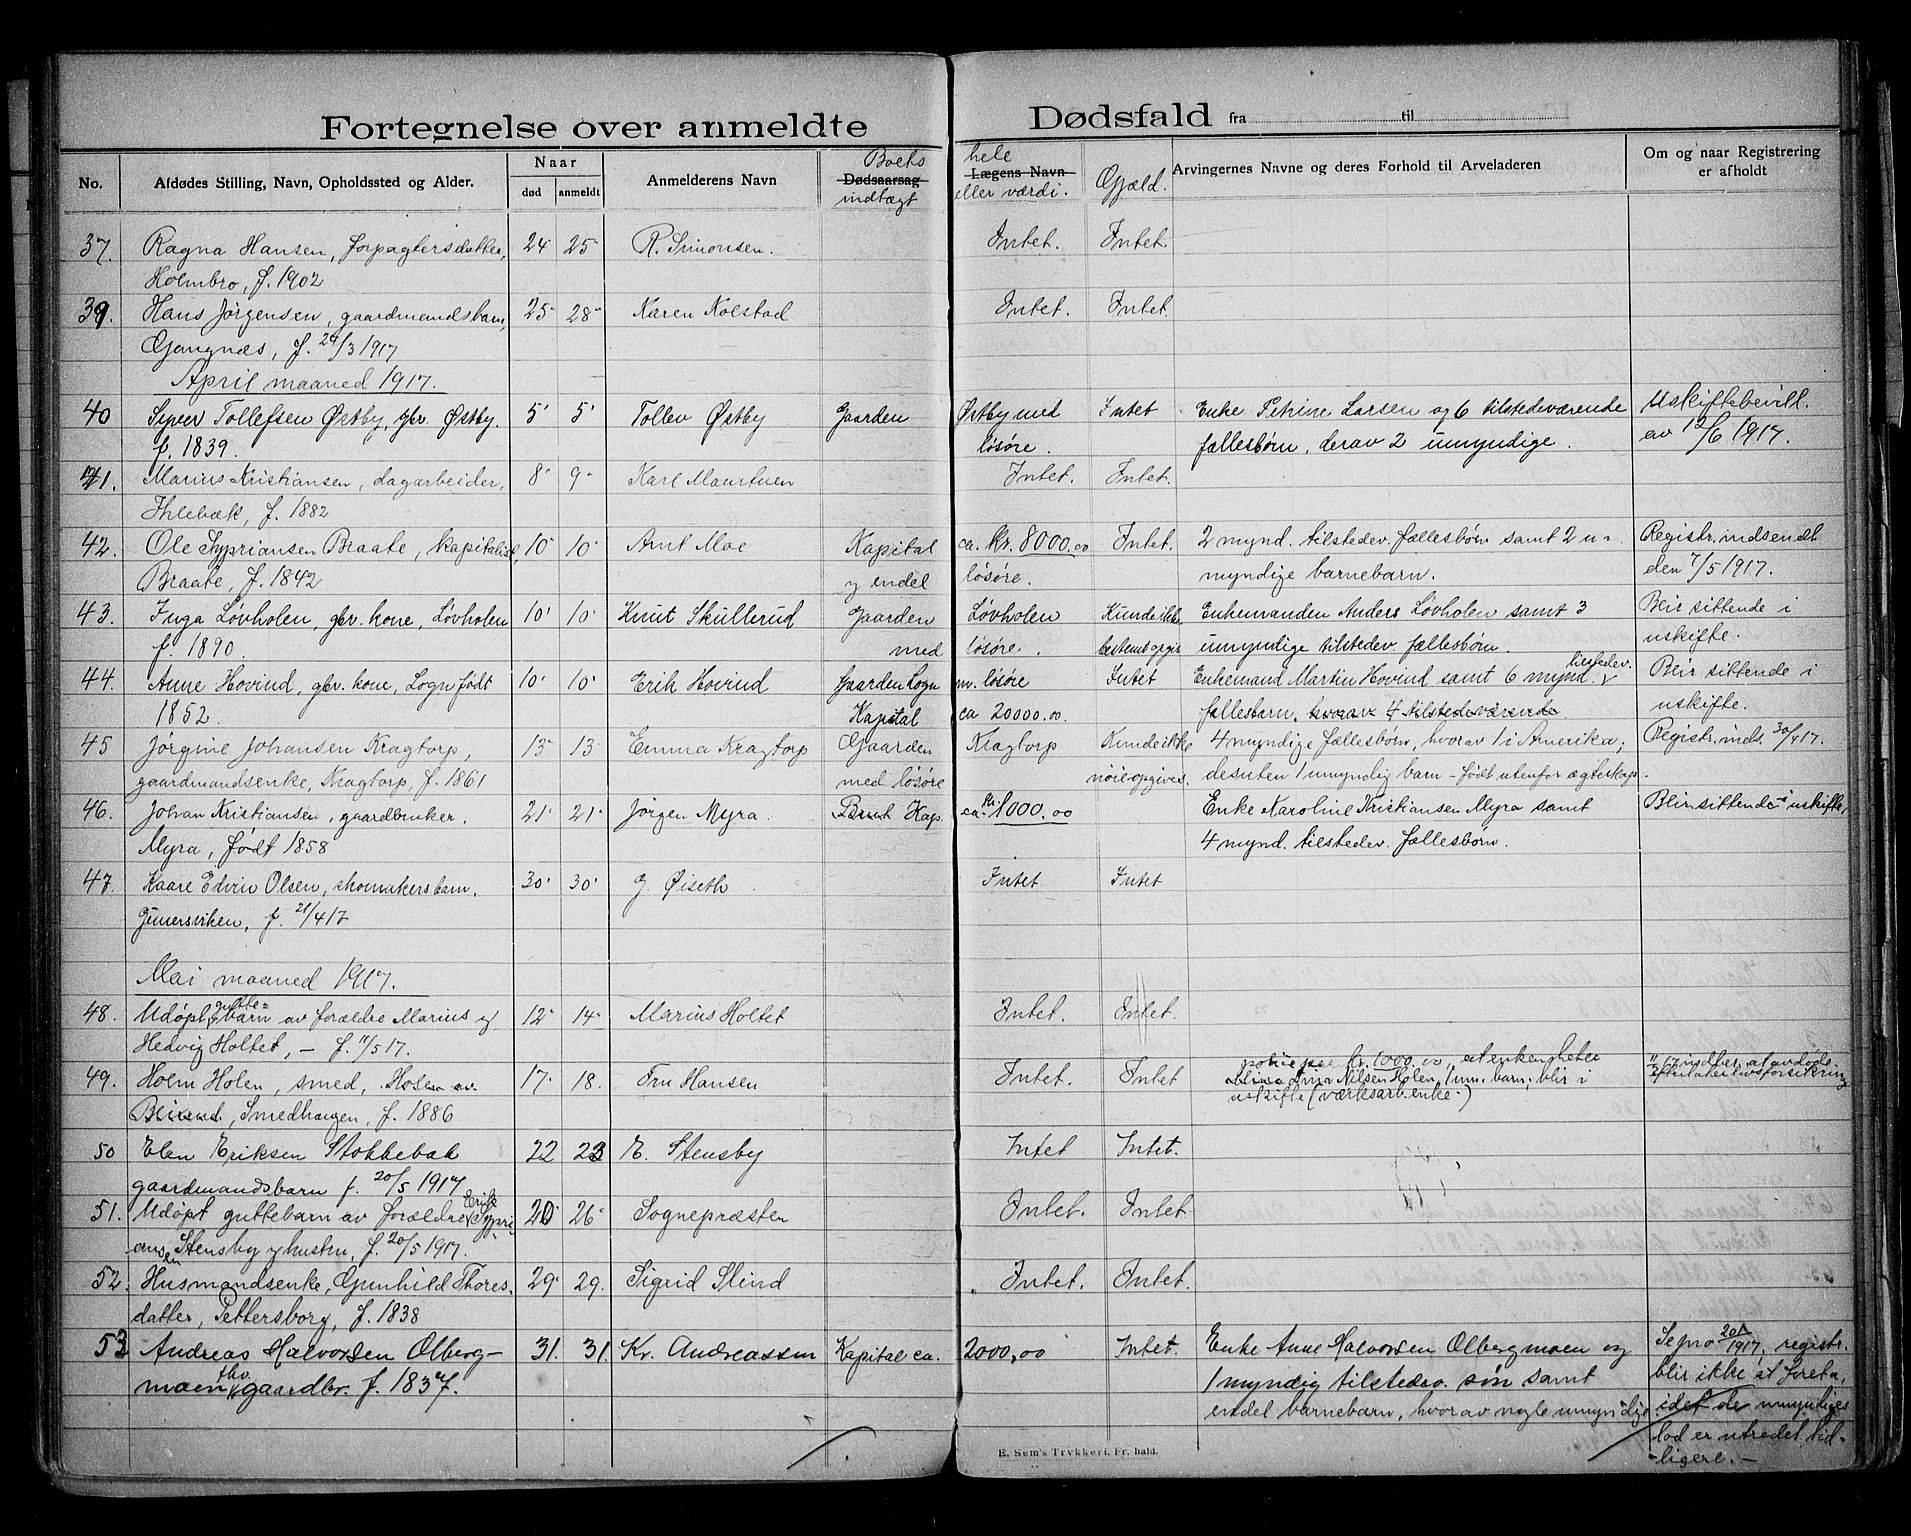 Fortegnelse over anmeldte Dødsfald fra til
No. Afdødes Stilling, Navn, Opholdssted og Alder. Naar død anmeldt Anmelderens Navn Boets Dødsaarsag indtægt hele Lægens Navn eller værdi. Gjæld. Arvingernes Navne og deres Forhold til Arveladeren Om og naar Registrering er afholdt
37. Ragna Hansen, forpagtersdatter, 24 25 R. Simonsen. Intet. Intet.
Holmbro, f. 1902
39. Hans Jørgensen, gaardmandsbarn, 25 28 Karen Kolstad Intet. Intet.
Gangnæs, f. 24/3 1917
April maaned 1917.
40 Syver Tollefsen Østby, gbr. Østby. 5 5 Tollev Østby Gaarden Østby med Intet Enke Petrine Larsen og 6 tilstedeværende Uskiftebevill.
f. 1839. løsøre. fællesbørn, derav 2 umyndige. av 12/6 1917.
41. Marius Kristiansen, dagarbeider, 8 9 Karl Maurtuen Intet. Intet.
Ihlebæk, f. 1882
42. Ole Sypriansen Braate, kapitalist, 10 10 Arnt Moe Kapital ca. kr. 8000.00 Intet. 2 mynd. tilstedev. fællesbørn samt 2 u- Registr. indsendt
Braate, f. 1842 og endel løsøre. myndige barnebarn. den 7/5 1917.
43. Inga Løvholen, gbr. kone, Løvholen 10 10 Knut Skullerud Gaarden Løvholen Kunde ikke Enkemanden Anders Løvholen samt 3 Blir sittende i
f. 1890. med løsøre. bestemt opgis umyndige tilstedev. fællesbørn. uskifte.
44. Anne Hovind, gbr. kone, Logn født 10 10 Erik Hovind Gaarden Logn m. løsøre Intet Enkemand Martin Hovind samt 6 mynd. tilstedev. Blir sittende i
1852. Kapital ca 20000.00. fællesbarn, hvorav 4 tilstedeværende uskifte.
45 Jørgine Johansen Kragtorp, 13 13 Emma Kragtorp Gaarden Kragtorp Kunde ikke 4 myndige fællesbørn, hvorav 1 i Amerika; Registr. inds. 30/4 17.
gaardmandsenke, Kragtorp, f. 1861 med løsøre nøie opgives. desuten 1 umyndig barn - født utenfor ægteskap.
46. Johan Kristiansen, gaardbruker. 21 21 Jørgen Myra. Brut Kap. ca. kr. 1000.00 Enke Karoline Kristiansen Myra samt Blir sittende i uskifte,
Myra, født 1858 4 mynd. tilstedev. fællesbørn.
47. Kaare Edvin Olsen, skomakersbarn, 30 30 G. Øiseth Intet Intet
Gunersviken, f. 21/4 17
Mai maaned 1917.
48. Udøpt gutte- barn av forældre Marius og 12 14 Marius Holtet Intet. Intet.
Hedvig Holtet, - f. 11/5 17.
49. Holm Holen, smed, Holen av 17 18. Fru Hansen Intet. Intet kr. 1000.00, at enken heter
Smedhaugen, f. 1886 Anna Nilsen Holen, 1 um. barn, blir i uskifte (værksarb. enke.)
50 Elen Eriksen Stokkebæk 22 23 E. Stensby Intet Intet.
gaardmandsbarn f. 20/5 1917
51. Udøpt guttebarn av forældre Erik Sypri- 20 26 Sognepræsten Intet. Intet.
ansen Stensby og hustru, f. 20/5 1917.
52. Husmandsenke, Gunhild Thores- 29 29. Sigrid Slind Intet. Intet.
datter, Pettersborg, f. 1838
53 Andreas Halvorsen Olberg- 31. 31. Kr. Andreassen Kapital ca. 2000,00 Intet. Enke Anne Halvorsen Olbergmoen og 1917, registr.
moen fhv. gaardbr. f. 1837. 1 myndig tilstedev. søn samt blir ikke at foreta,
endel barnebarn, hvorav nogle umyndige idet de umyndiges
lod er utredet tid-
ligere. -
E. Sem's Trykkeri, Fr. hald.